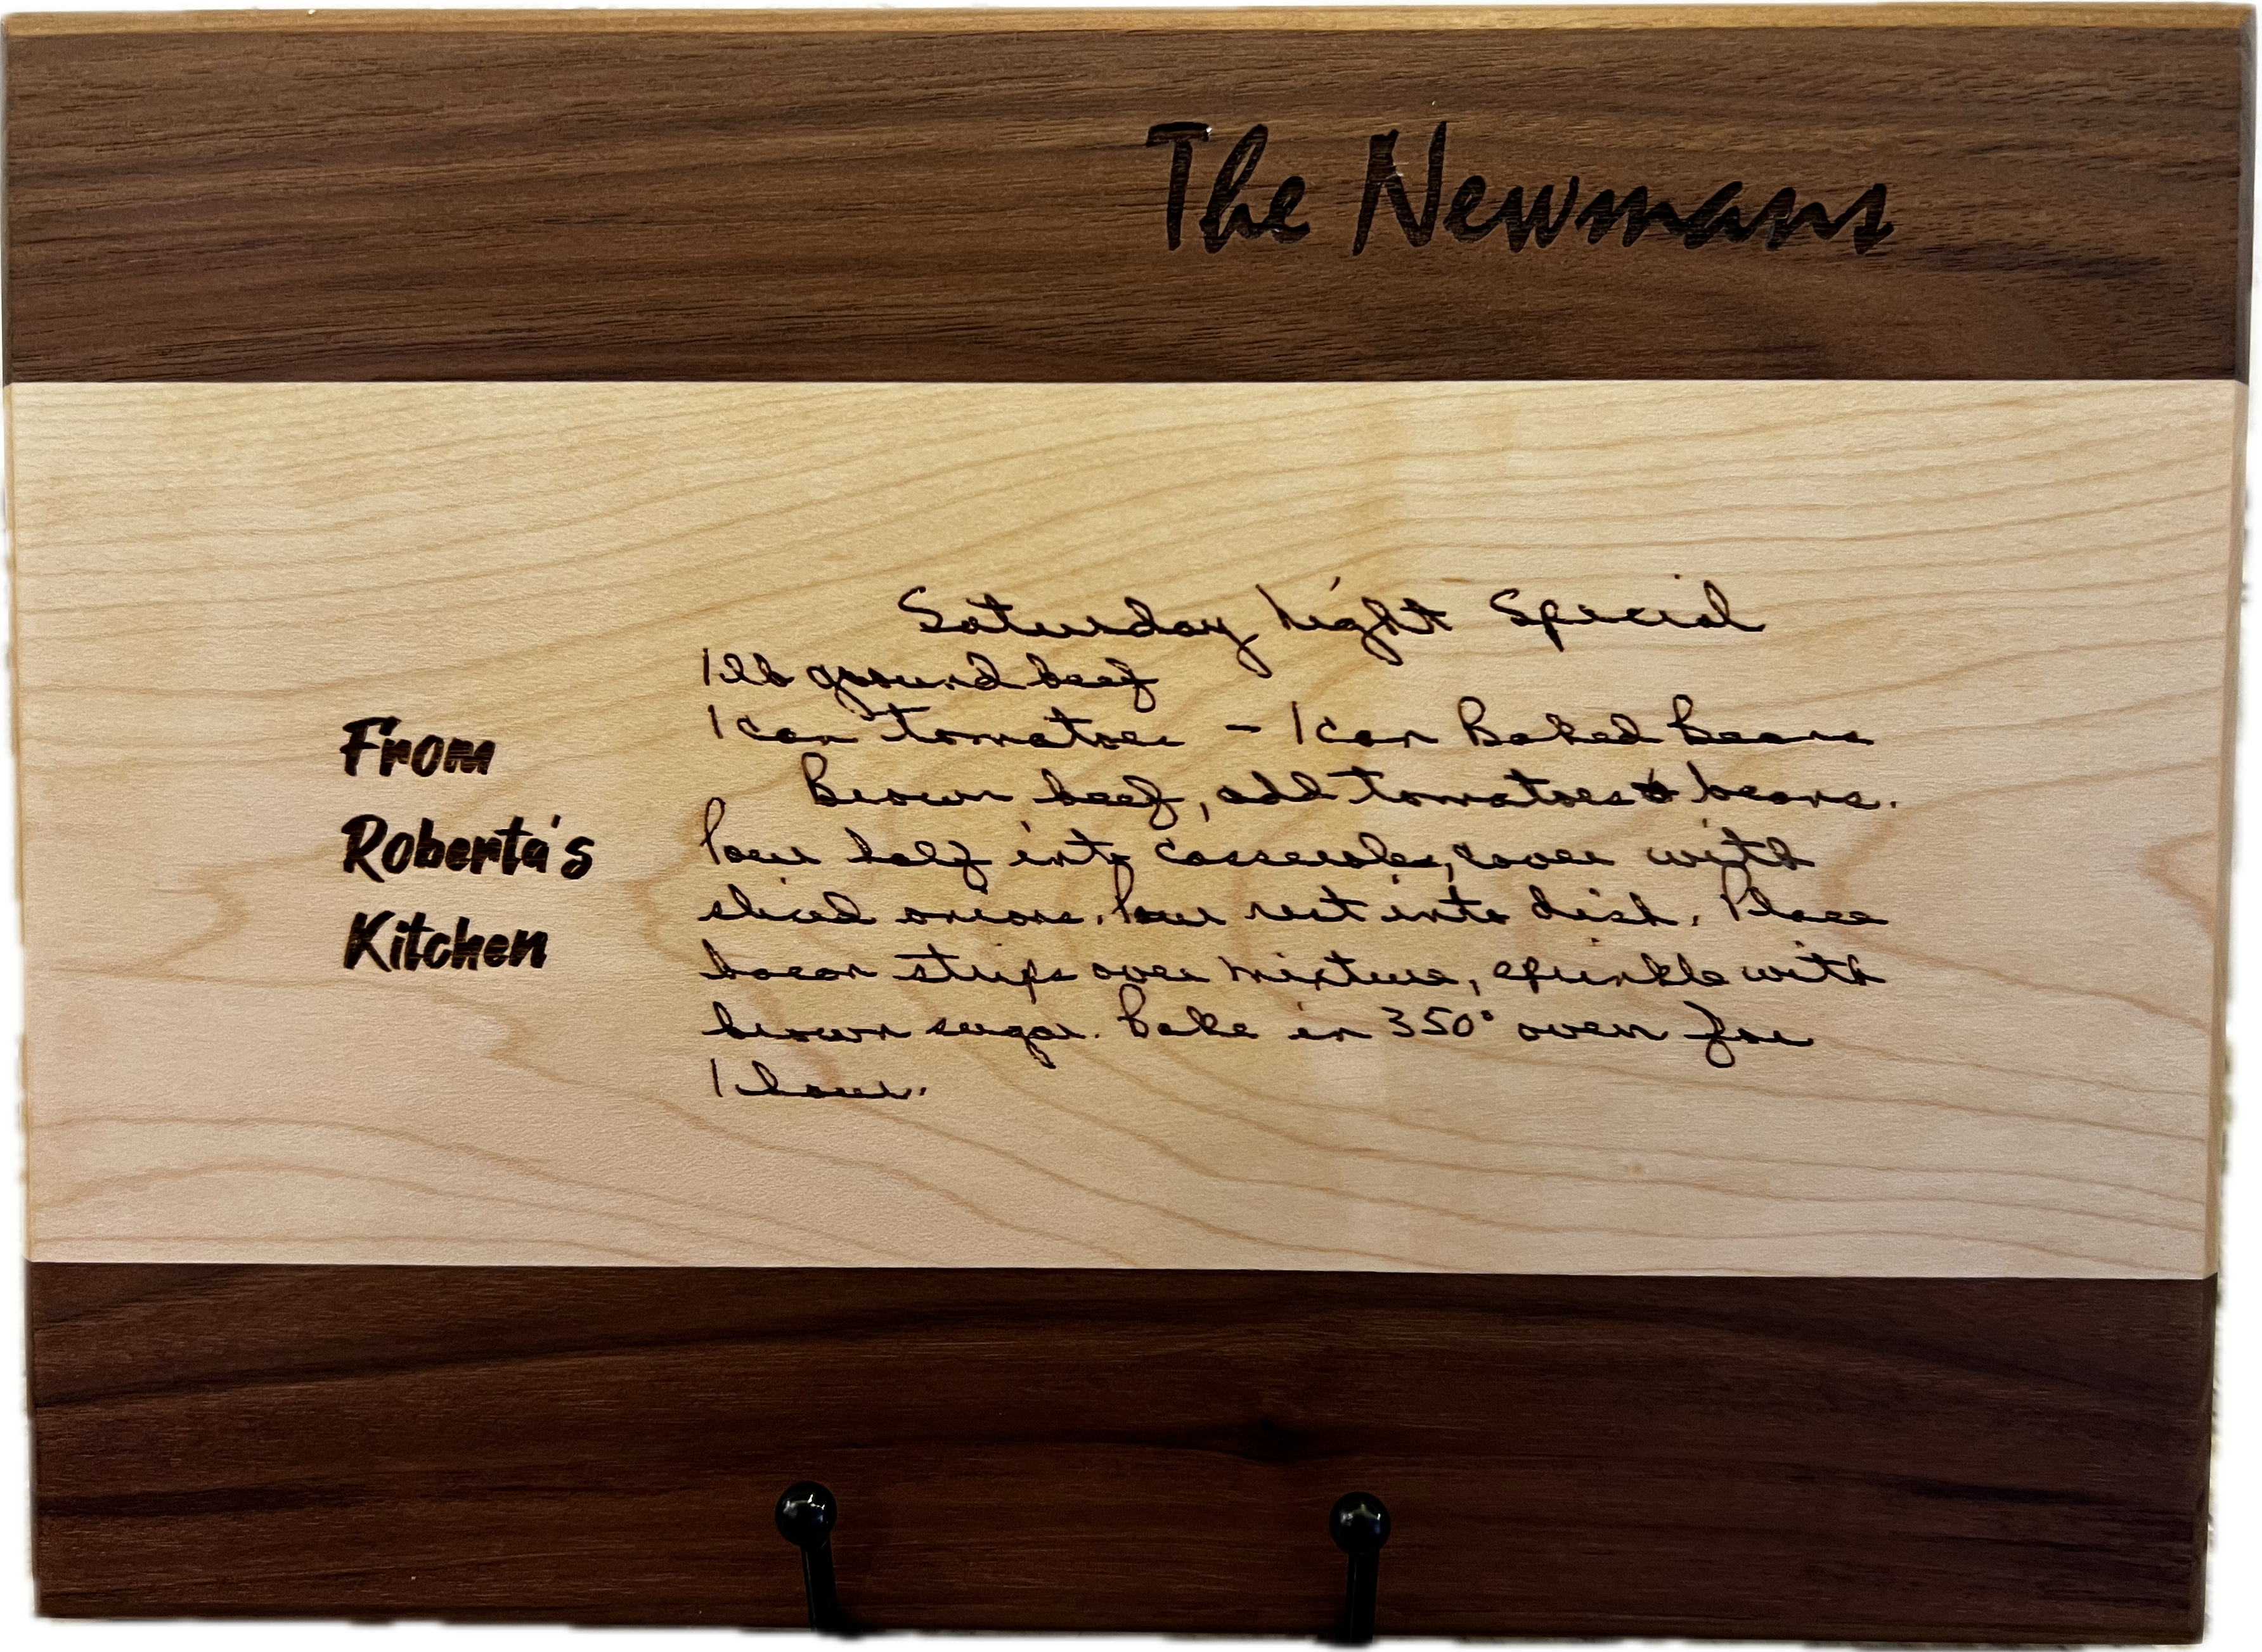 The Newmans
Saturday Night Special
1 lb ground beef
1 can tomatoes - 1 can Baked Beans
Brown beef, add tomatoes & beans.
Pour half into casserole, cover with
sliced onions. Pour rest into dish. Place
bacon strips over mixture, sprinkle with
brown sugar. Bake in 350° oven for
1 hour.
From
Roberta's
Kitchen